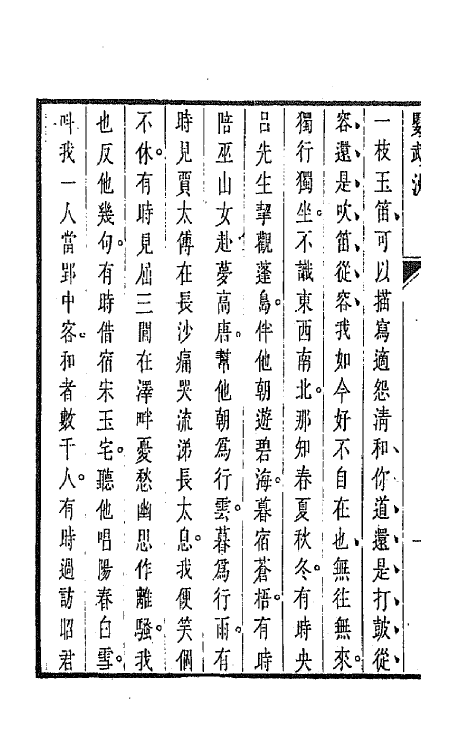 鸚鵡洲
一
一枝玉笛可以描寫適怨清和你道還是打鼓從
容還是吹笛從容我如今好不自在也無往無來。
獨行獨坐。不識東西南北。那知春夏秋冬。有時央
呂先生挈觀蓬島。伴他朝遊碧海。暮宿蒼梧。有時
陪巫山女赴夢高唐。幫他朝爲行雲。暮爲行雨。有
時見賈太傅在長沙痛哭流涕長太息。我便笑個
不休。有時見屈三閭在澤畔憂愁幽思作離騷。我
也反他幾句。有時借宿宋玉宅。聽他唱陽春白雪。
叫我一人當郢中客。和者數千人。有時過訪昭君